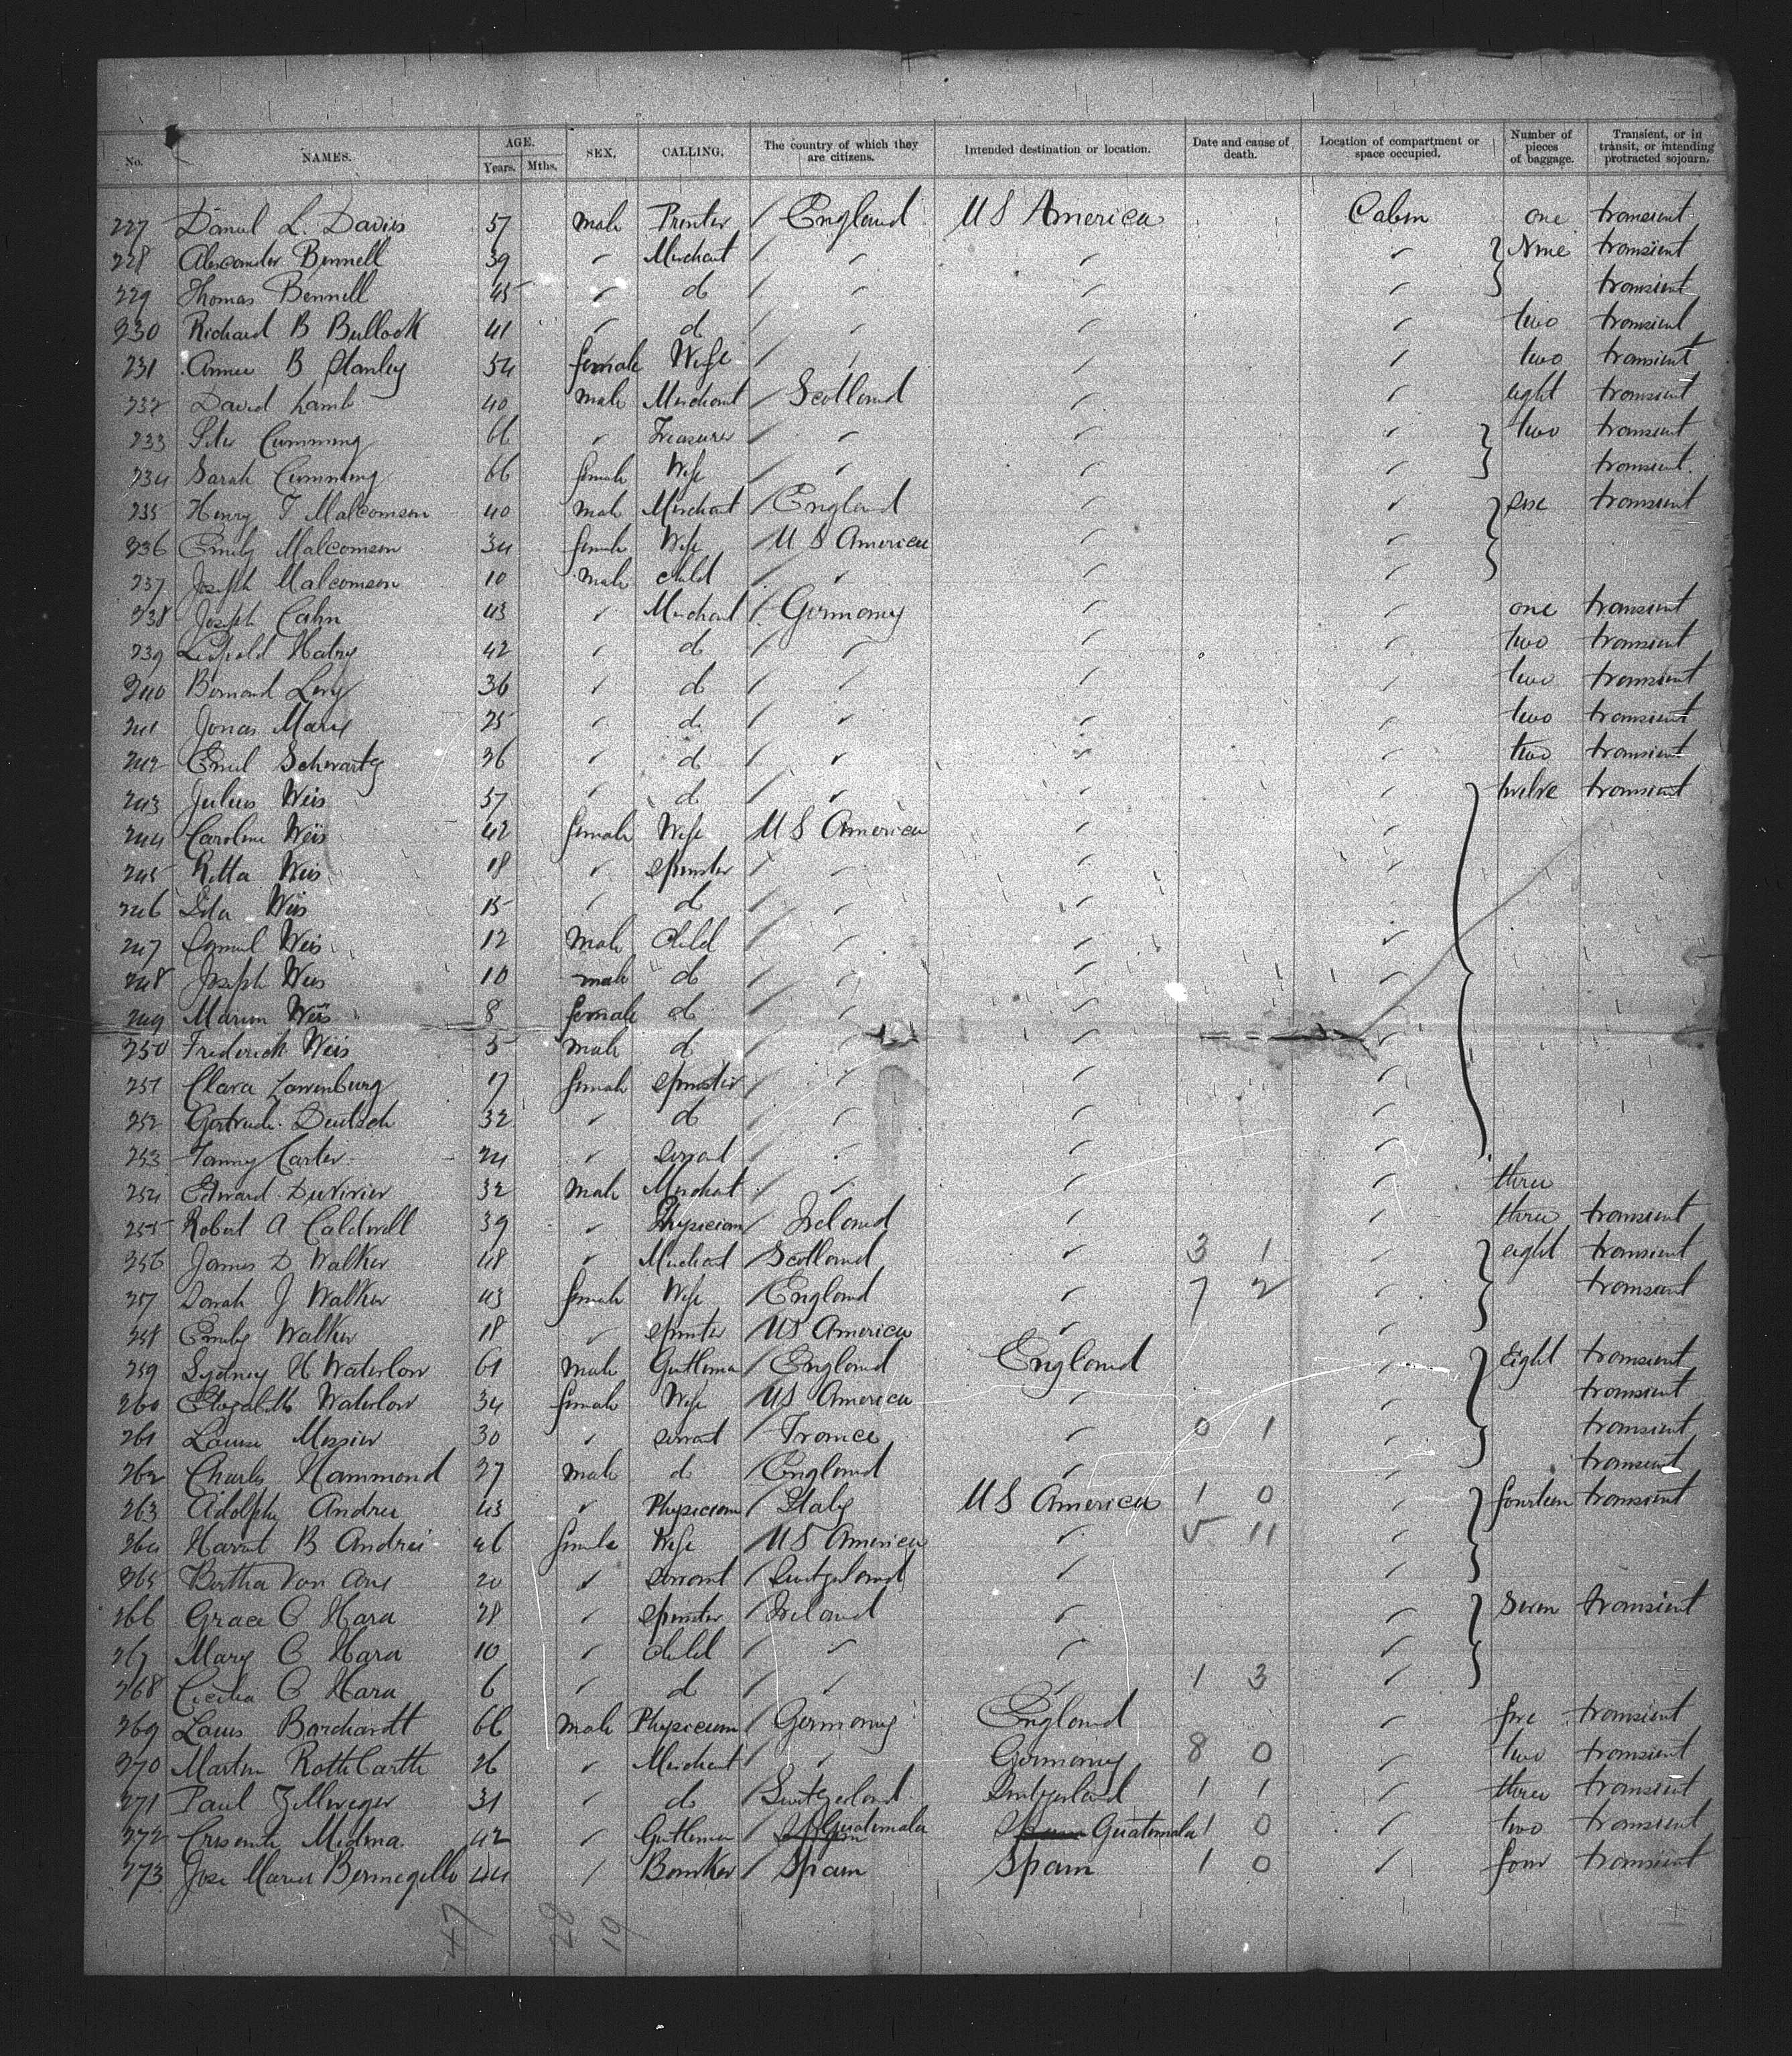 No. NAMES. AGE. Years. Mths. SEX. CALLING. The country of which they are citizens. Intended destination or location. Date and cause of death. Location of compartment or space occupied. Number of pieces of baggage. Transient, or in transit, or intending protracted sojourn.
227 Daniel L. Davies 57 male Printer / England U S America Cabin one transient
228 Alexander Bennell 39 " Merchant / " " " Nine transient
229 Thomas Bennell 45 " do / " " " transient
230 Richard B Bullock 41 " do / " " " two transient
231 Annie B Stanley 54 female Wife / " " " two transient
232 David Lamb 40 male Merchant / Scotland " " eight transient
233 Peter Cumming 66 " Treasurer / " " " two transient
234 Sarah Cumming 66 female Wife / " " " transient
235 Henry T Malcomson 40 male Merchant / England " " transient
236 Emily Malcomson 34 female Wife / U S America " "
237 Joseph Malcomson 10 male child / " " "
238 Joseph Cahn 43 " Merchant / Germany " " one transient
239 Leopold 42 " do / " " " two transient
240 Bernard Levy 36 " do / " " " two transient
241 Jonas Marx 25 " do / " " " two transient
242 Emil Schwartz 36 " do / " " " two transient
243 Julius Weis 57 " do / " " " twelve transient
244 Caroline Weis 42 female Wife U S America " "
245 Retta Weis 18 " spinster / " " "
246 Weis 15 " do / " " "
247 Samuel Weis 12 male child / " " "
248 Joseph Weis 10 male do / " " "
249 Marion Weis 8 female do / " " "
250 Frederick Weis 5 male do / " " "
251 Clara Lowenburg 17 female spinster / " " "
252 Gertrude Deutsch 32 " do / " " "
253 Fanny Carter 24 " servant / " " "
254 Edward Duvivier 32 male Merchant / " " " three
255 Robert A Caldwell 39 " Physician / Ireland " " three transient
256 James D Walker 48 " Merchant / Scotland " 3 1 " eight transient
257 Sarah J Walker 43 female Wife / England " 7 2 " transient
258 Emily Walker 18 " spinster / US America " "
259 Sydney H Waterlow 61 male Gentleman / England England " Eight transient
260 Elizabeth Waterlow 34 female Wife / US America " " transient
261 Louise Messier 30 " servant / France " 0 1 " transient
262 Charles Hammond 37 male do / England " " transient
263 Adolphe Andrei 43 " Physician / Italy U S America 1 0 " fourteen transient
264 Harriet B Andrei 46 female Wife / U S America " 5 11 "
265 Bertha Von Arx 20 " servant / Switzerland " "
266 Grace O Hara 28 " spinster / Ireland " " Seven transient
267 Mary O Hara 10 " child / " " "
268 Cecilia O Hara 6 " do / " " 1 3 "
269 Louis Borchardt 66 male Physician / Germany England " five transient
270 Martin Rothbarth 26 " Merchant / " Germany 8 0 " two transient
271 Paul Zellweger 31 " do / Switzerland Switzerland 1 1 " three transient
272 Medina 42 " Gentleman / Spain Guatemala Spain Guatemala 1 0 " two transient
273 Jose Maria Bermegillo 44 " Banker / Spain Spain 1 0 " four transient
47 28 19